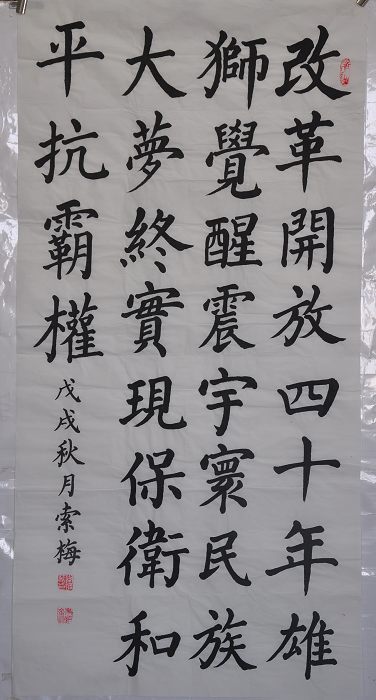 改革開放四十年雄
獅覺醒震宇寰民族
大夢終實現保衛和
平抗霸權
戊戌秋月索梅